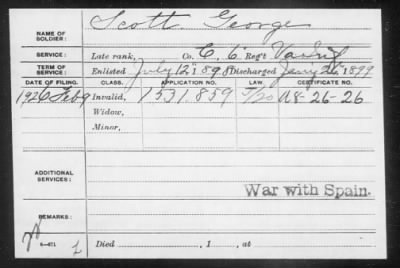 Scott George
NAME OF SOLDIER:
SERVICE: Late rank, Co. C, 6 Reg't Va. Inf
TERM OF SERVICE: Enlisted July 12, 1898 Discharged Jany 26, 1899
DATE OF FILING. CLASS. APPLICATION NO. LAW. CERTIFICATE NO.
1926 Feb 9 Invalid, 1531.859 5/20 A 8-26-26
Widow,
Minor,
ADDITIONAL SERVICES:
War with Spain.
REMARKS:
Died , 1 , at